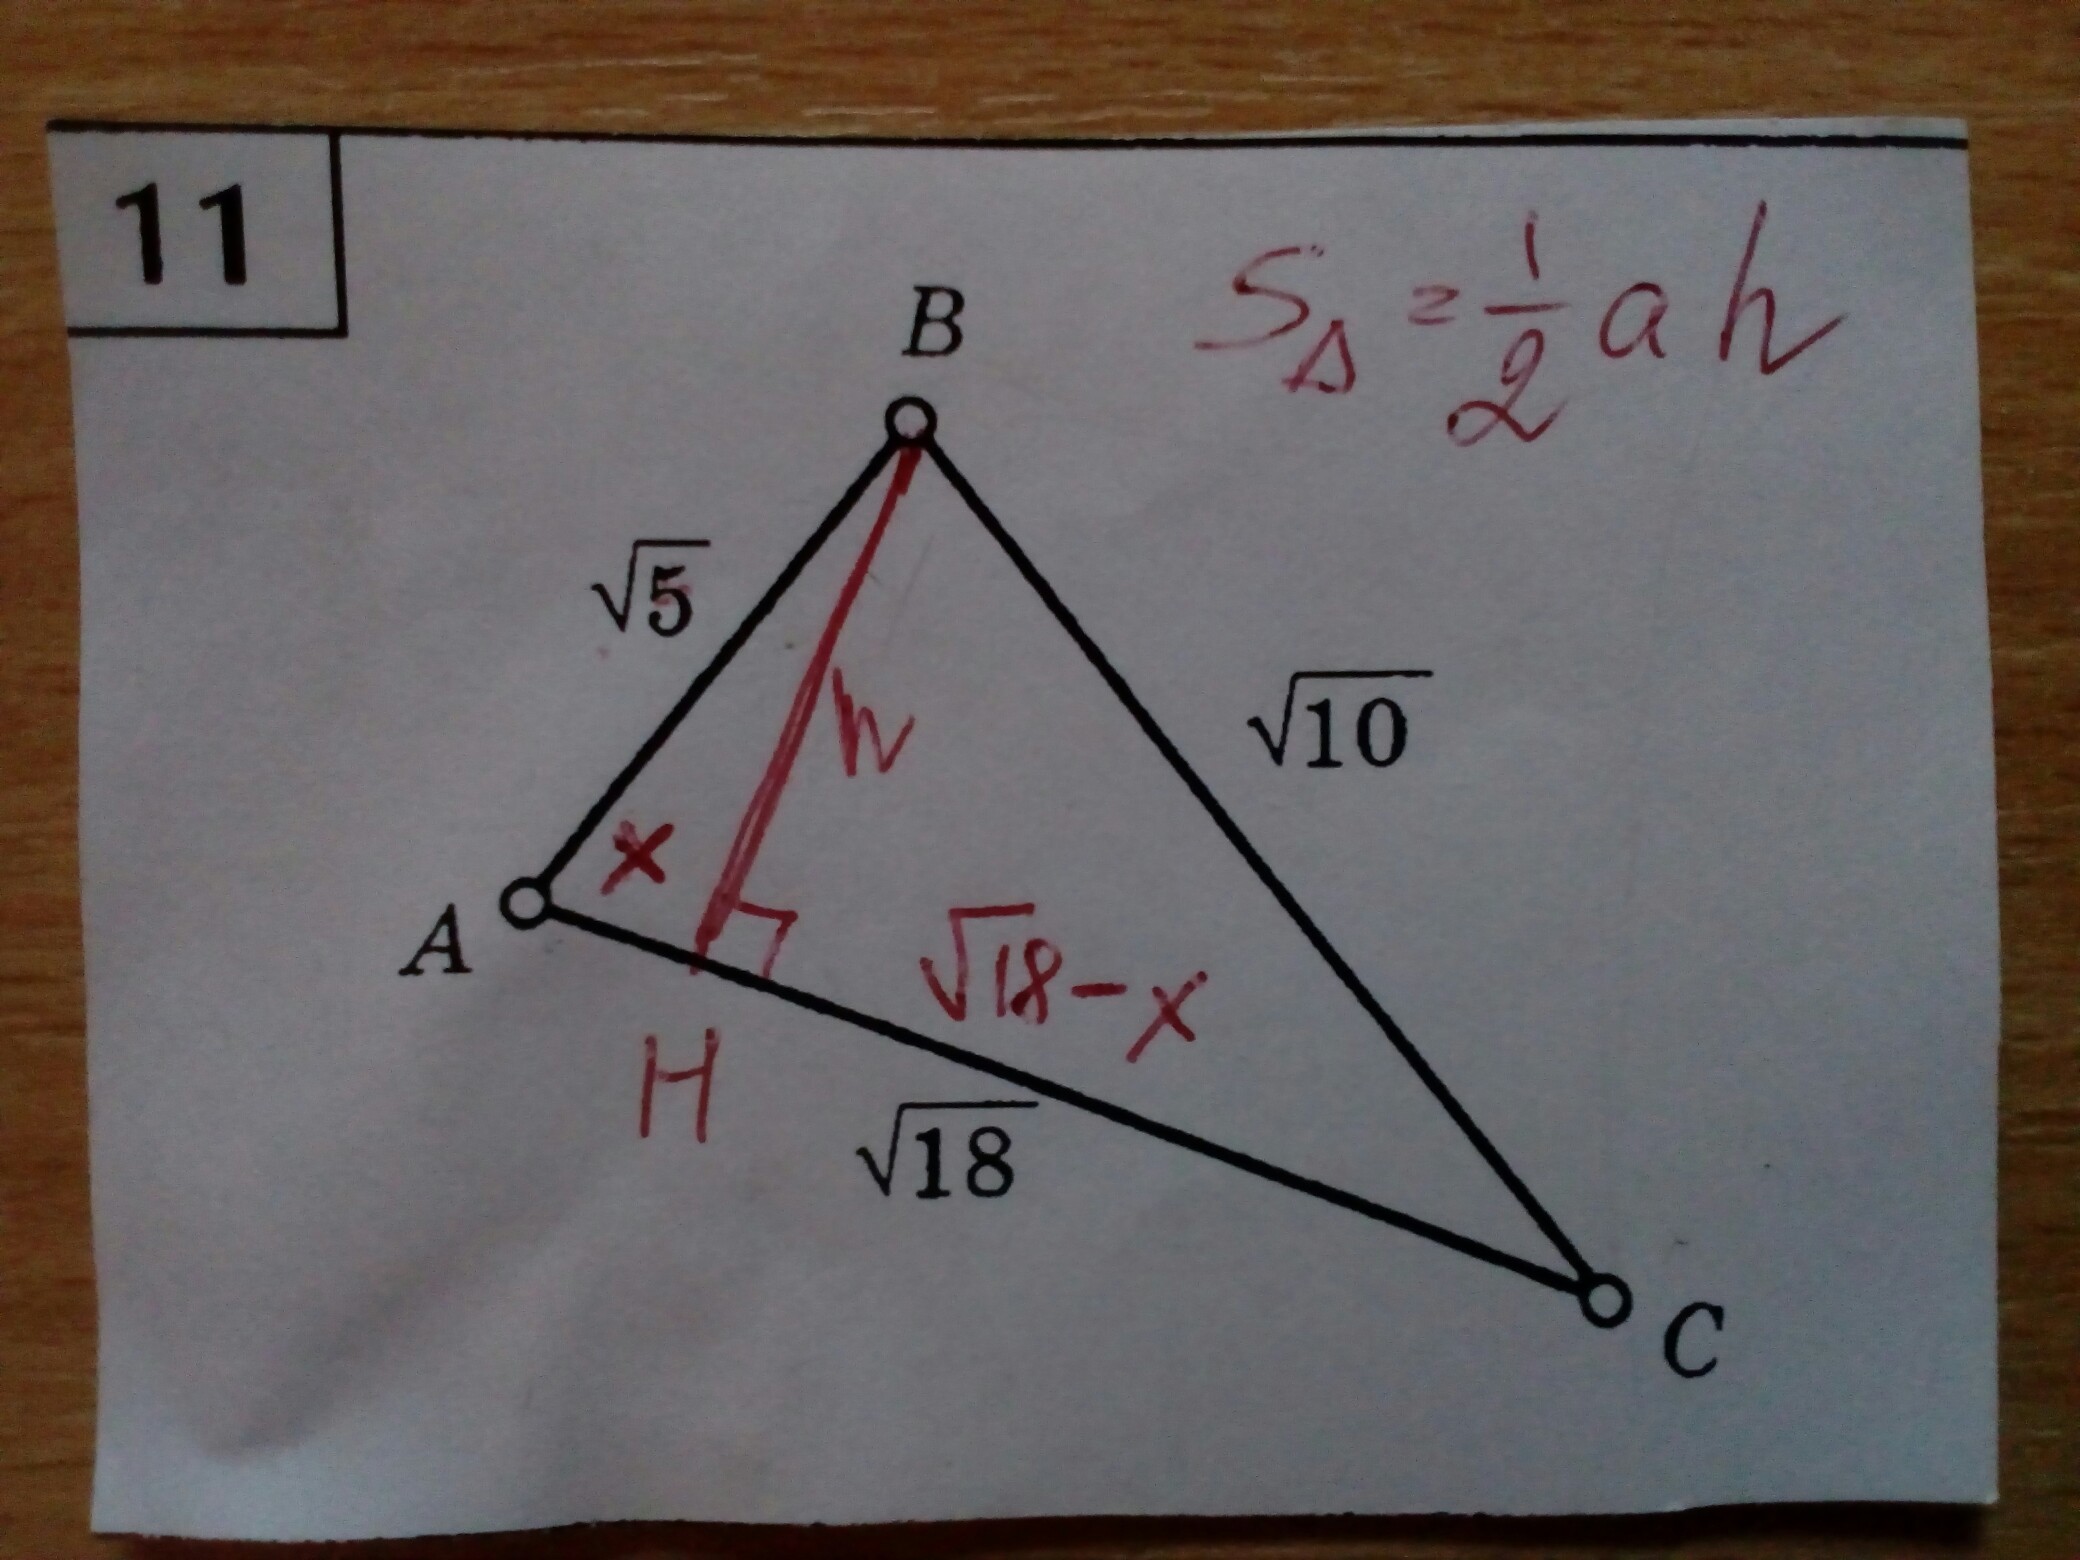 11
S△ = 1/2 a h
B
√5
h
√10
x
A
√18 - x
H
√18
C